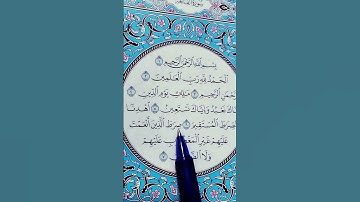 بِسْمِ اللَّهِ الرَّحْمَٰنِ الرَّحِيمِ
الْحَمْدُ لِلَّهِ رَبِّ الْعَالَمِينَ
الرَّحْمَٰنِ الرَّحِيمِ مَالِكِ يَوْمِ الدِّينِ
نَعْبُدُ وَإِيَّاكَ نَسْتَعِينُ اهْدِنَا
الْمُسْتَقِيمَ صِرَاطَ الَّذِينَ أَنْعَمْتَ
عَلَيْهِمْ غَيْرِ عَلَيْهِمْ
وَلَا